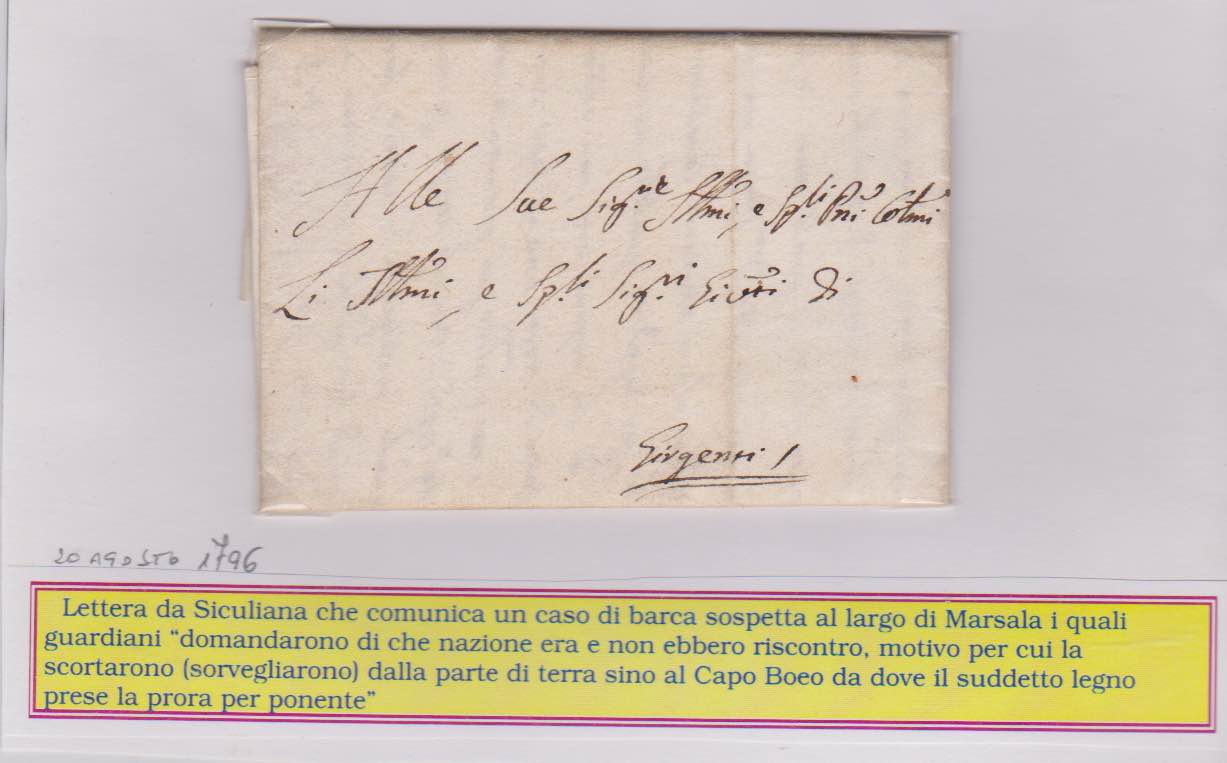 Alle Sue Sig.re Ill̃mi, e Sp.li Pñi Col̃mi
Li Ill̃mi, e Sp.li Sig.ri Giũti di
Girgenti /
20 AGOSTO 1796
Lettera da Siculiana che comunica un caso di barca sospetta al largo di Marsala i quali
guardiani “domandarono di che nazione era e non ebbero riscontro, motivo per cui la
scortarono (sorvegliarono) dalla parte di terra sino al Capo Boeo da dove il suddetto legno
prese la prora per ponente”